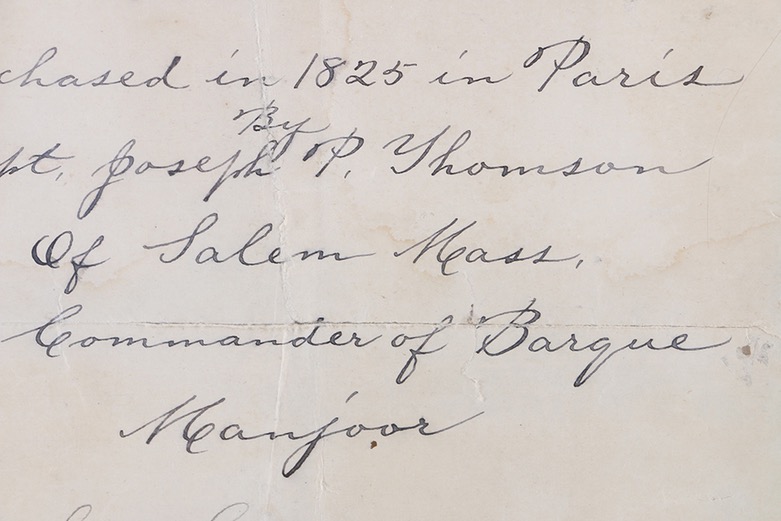 chased in 1825 in Paris
By
pt. Joseph P. Thomson
Of Salem Mass.
Commander of Barque
Manjoor